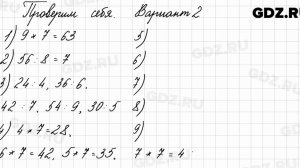 Проверим себя. Вариант 2
1) 9 * 7 = 63 5)
2) 56 : 8 = 7 6)
3) 24 : 4, 36 : 6. 7)
42 : 7, 54 : 9, 30 : 5 8)
4) 4 * 7 = 28. 9)
6 * 7 = 42, 5 * 7 = 35. 7 * 7 = 4
GDZ.RU